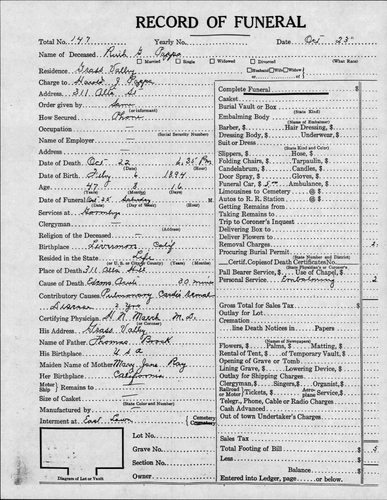 RECORD OF FUNERAL
Total No. 147 Yearly No. Date Oct 23"
Name of Deceased Ruth G.
Married Single Widowed Divorced (What Race)
Residence Grass Valley Husband Wife Widow of
Charge to Harold J.
Address 311 Alta St
Order given by Same
(or informant)
How Secured Phone
Occupation
(Social Security Number)
Name of Employer
Address
Date of Death Oct 22 6,35 P M
Date of Birth 6 1894
Age 47 8 16
Date of Funeral Oct 25 Saturday M.
Services at
Clergyman
Religion of the Deceased
Birthplace Livermore Calif
Resided in the State Life
Place of Death 311 Alta Hill
Cause of Death 30 min
Contributory Causes Pulmonary Cardio Renal
3 Yrs
Certifying Physician H. R. March M. D.
(or Coroner)
His Address Grass Valley
Name of Father Thomas
His Birthplace U S A
Maiden Name of Mother Mary Jane Ray
Her Birthplace California
Motor Ship Remains to
Size of Casket
(State Color and Number)
Manufactured by
Interment at East Lawn Cemetery Crematory
Lot No.
Grave No.
Section No.
Owner
Diagram of Lot or Vault
Complete Funeral
Casket
Burial Vault or Box
(State Kind)
Embalming Body
(Name of Embalmer)
Barber, $ Hair Dressing, $
Dressing Body, $ Underwear, $
(State Kind and Color)
Slippers, $ Hose, $
Folding Chairs, $ Tarpaulin, $
Candelabrum, $ Candles, $
Door Spray, $ Gloves, $
Funeral Car, $ Ambulance, $
Limousines to Cemetery @ $
Autos to R. R. Station @ $
Getting Remains from
Taking Remains to
Trip to Coroner's Inquest
Delivering Box to
Deliver Flowers to
Removal Charges
Procuring Burial Permit
(State Number and District)
Certif. Copies of Death Certificates No.
(State Physician's or Coroner's)
Pall Bearer Service, $ Use of Chapel, $
Personal Service, Embalming 2
Gross Total for Sales Tax
Outlay for Lot
Cremation
line Death Notices in Papers
(Names of Newspapers)
Flowers, $ Palms, $ Matting, $
Rental of Tent, $ of Temporary Vault, $
Opening of Grave or Tomb
Lining Grave, $ Lowering Device, $
Outlay for Shipping Charges
Clergyman, $ Singers, $ Organist, $
Railroad or Motor / Tickets, $ Aero-plane Service, $
Telegr., Phone, Cable or Radio Charges
Cash Advanced
Out of town Undertaker's Charges
Sales Tax
Total Footing of Bill $ 5
Less
Balance $
Entered into Ledger, page or below.